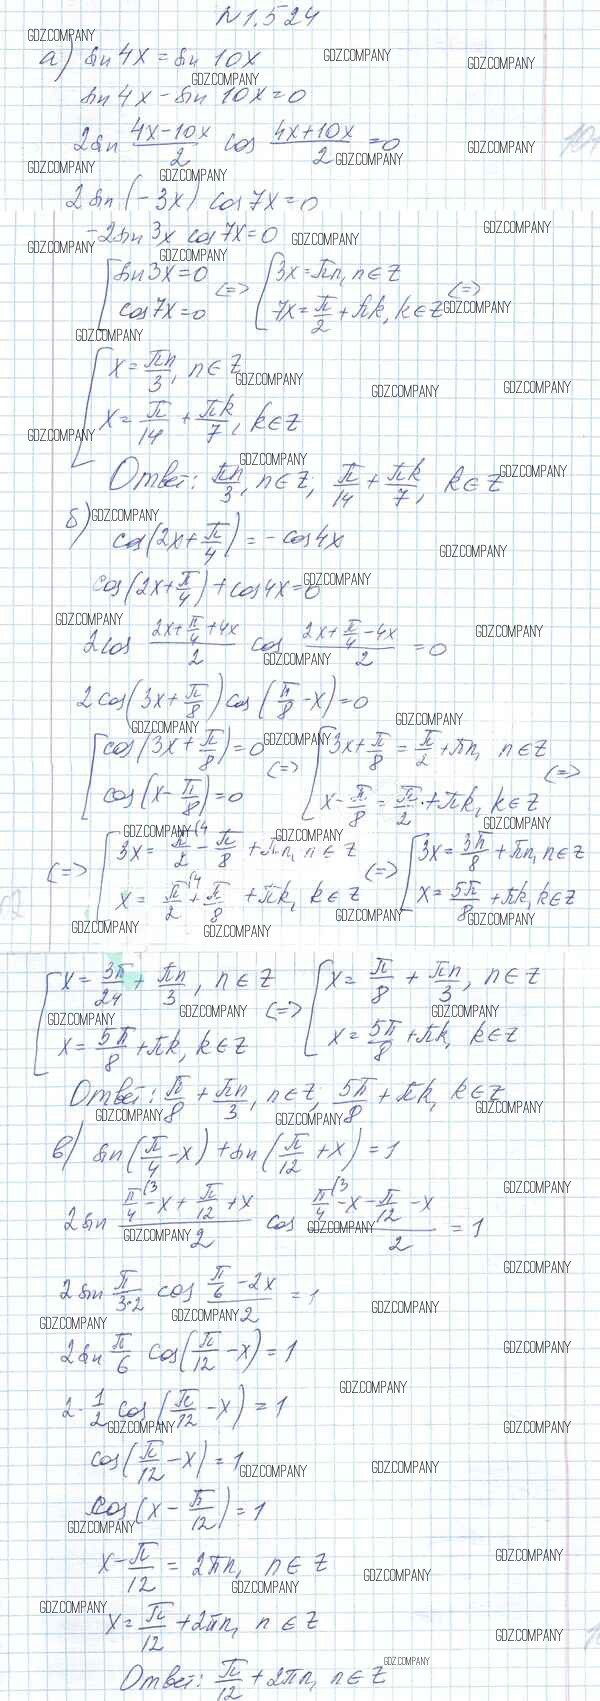 N 1.524
а) sin 4x = sin 10x
sin 4x − sin 10x = 0
2 sin (4x−10x)/2 cos (4x+10x)/2 = 0
2 sin (−3x) cos 7x = 0
−2 sin 3x cos 7x = 0
[ sin 3x = 0 <=> [ 3x = πn, n∈Z <=>
cos 7x = 0 7x = π/2 + πk, k∈Z
[ x = πn/3, n∈Z
x = π/14 + πk/7, k∈Z
Ответ: πn/3, n∈Z; π/14 + πk/7, k∈Z
б)
cos(2x + π/4) = − cos 4x
cos(2x + π/4) + cos 4x = 0
2 cos (2x + π/4 + 4x)/2 cos (2x + π/4 − 4x)/2 = 0
2 cos(3x + π/8) cos(π/8 − x) = 0
[ cos(3x + π/8) = 0 <=> [ 3x + π/8 = π/2 + πn, n∈Z <=>
cos(x − π/8) = 0 x − π/8 = π/2 + πk, k∈Z
<=> [ 3x = π/2 (4 − π/8 + πn, n∈Z <=> [ 3x = 3π/8 + πn, n∈Z
x = π/2 (4 + π/8 + πk, k∈Z x = 5π/8 + πk, k∈Z
[ x = 3π/24 + πn/3, n∈Z <=> [ x = π/8 + πn/3, n∈Z
x = 5π/8 + πk, k∈Z x = 5π/8 + πk, k∈Z
Ответ: π/8 + πn/3, n∈Z, 5π/8 + πk, k∈Z
в) sin(π/4 − x) + sin(π/12 + x) = 1
2 sin (π/4 (3 − x + π/12 + x)/2 cos (π/4 (3 − x − π/12 − x)/2 = 1
2 sin π/3·2 cos (π/6 − 2x)/2 = 1
2 sin π/6 cos(π/12 − x) = 1
2 · 1/2 cos(π/12 − x) = 1
cos(π/12 − x) = 1
cos(x − π/12) = 1
x − π/12 = 2πn, n∈Z
x = π/12 + 2πn, n∈Z
Ответ: π/12 + 2πn, n∈Z
GDZ.COMPANY